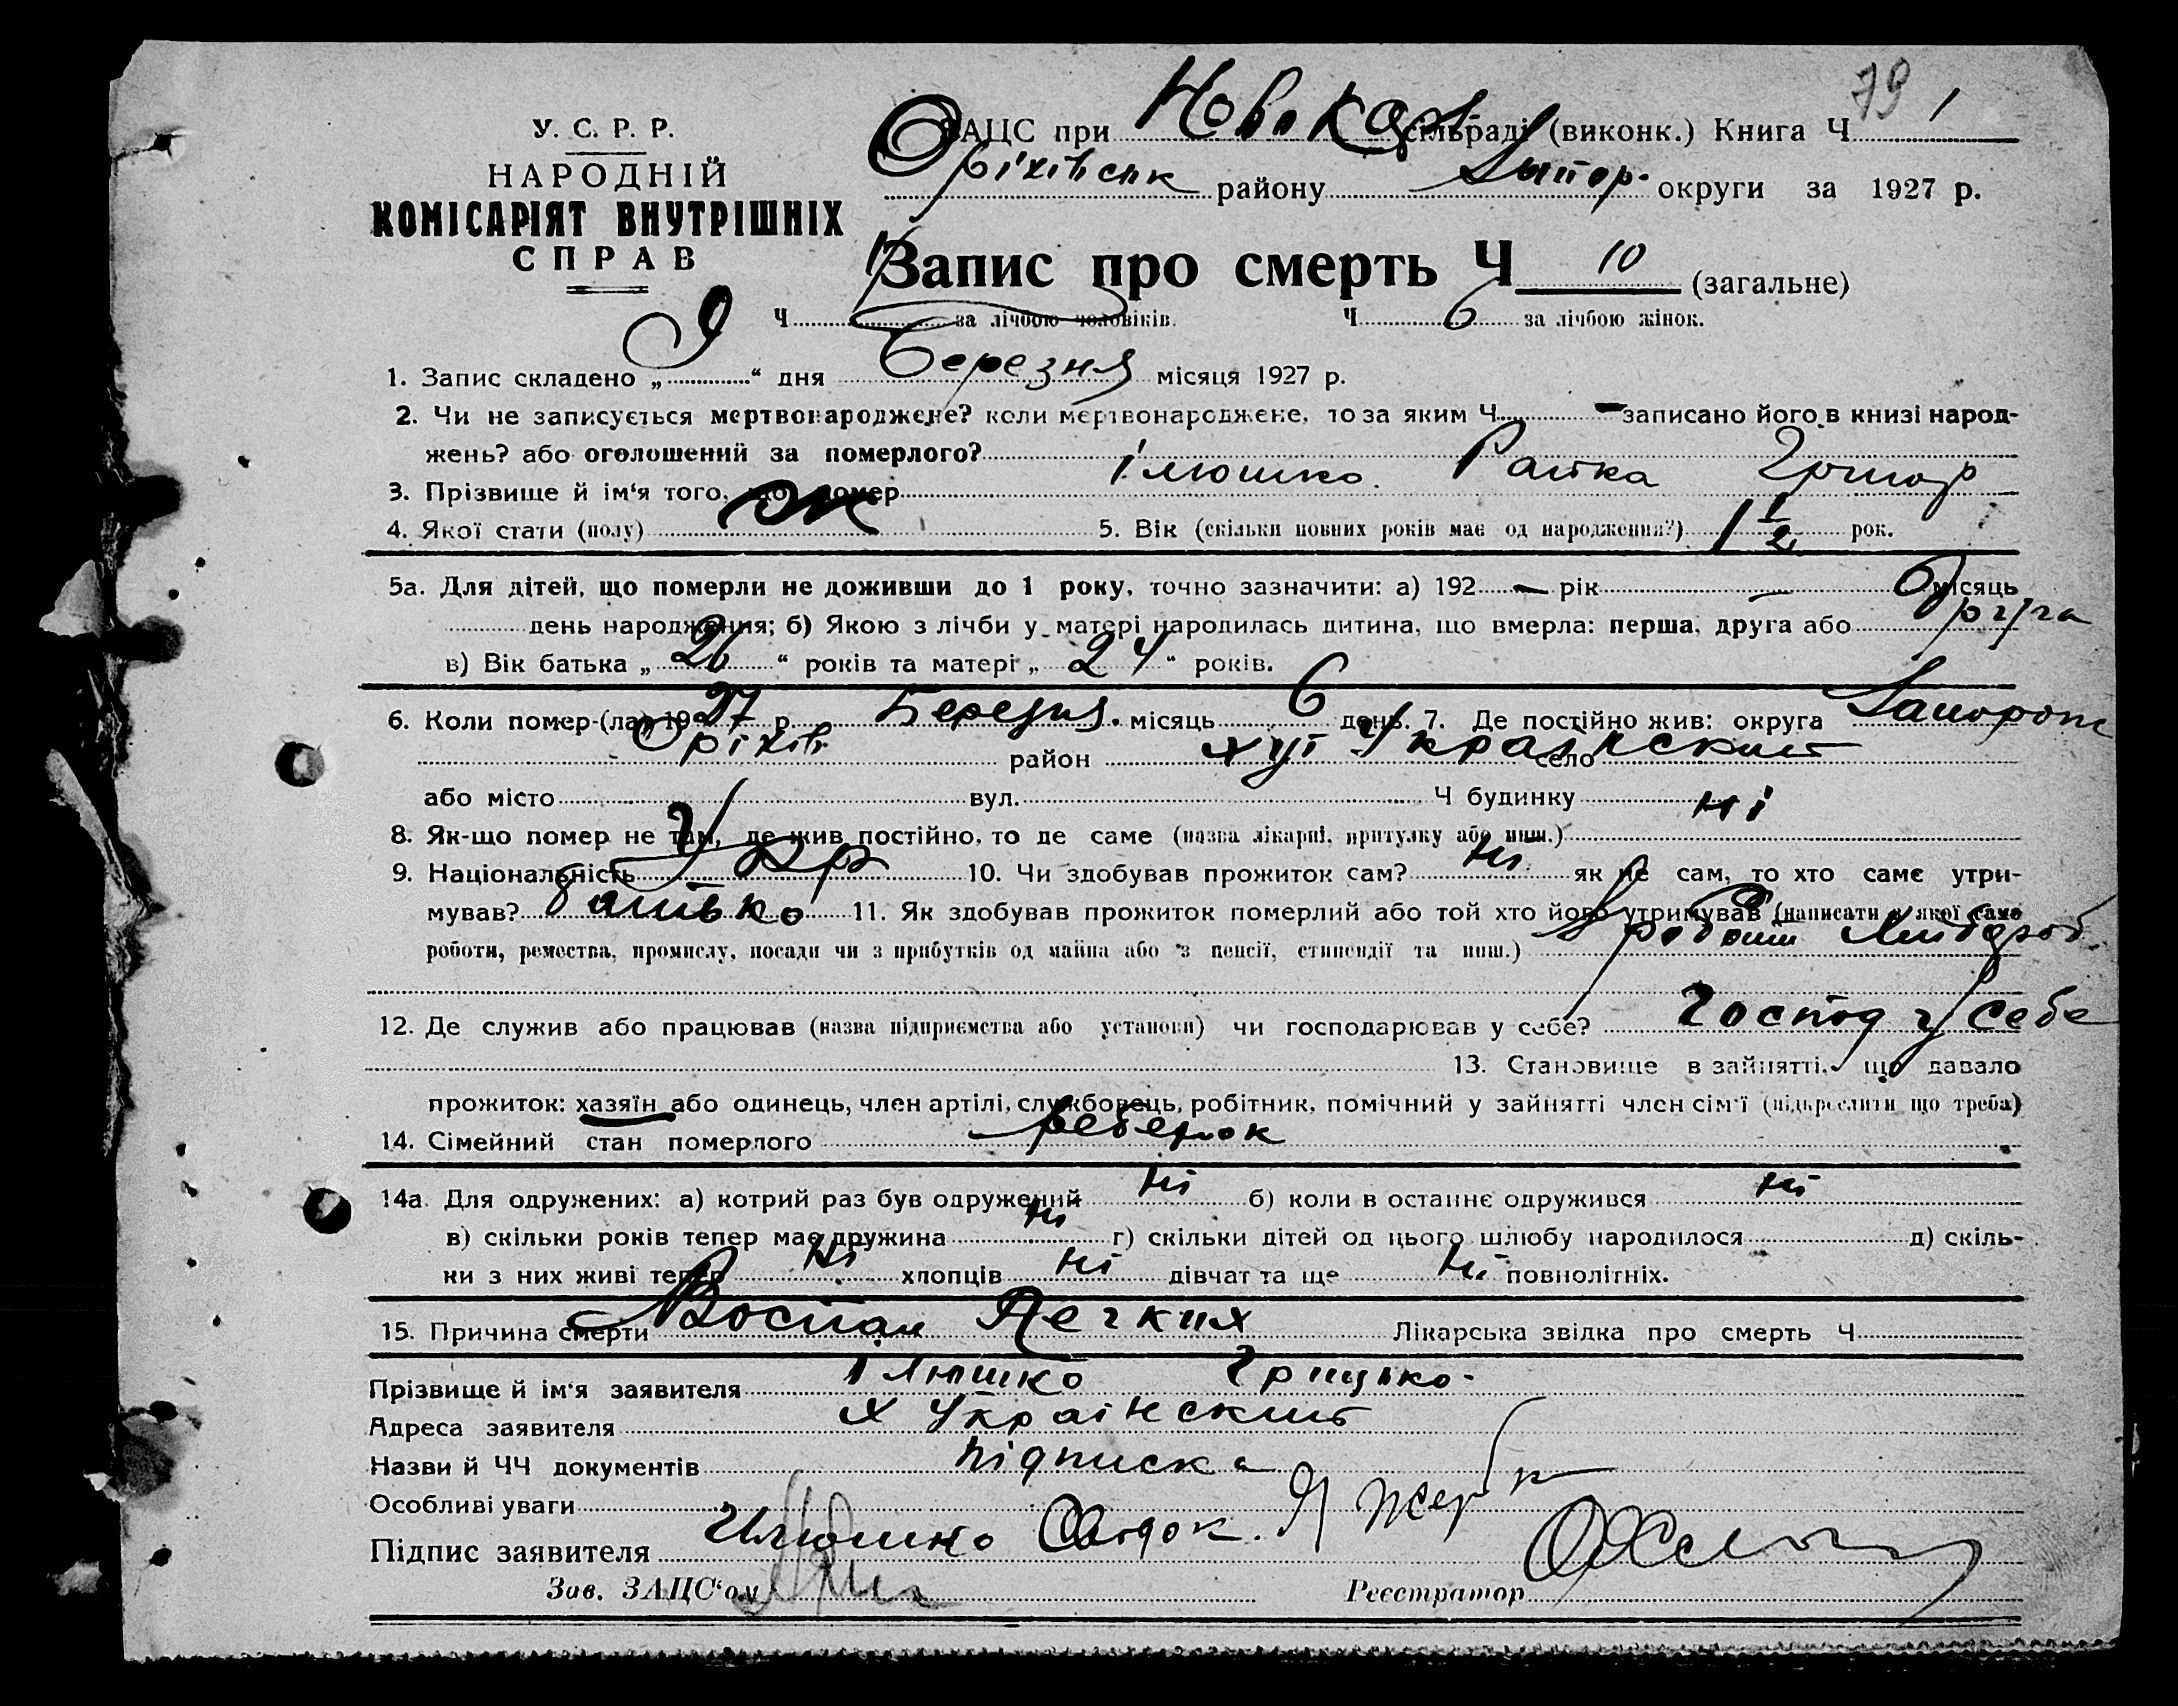 79
У. С. Р. Р.
НАРОДНІЙ
КОМІСАРІЯТ ВНУТРІШНІХ
СПРАВ
ЗАЦС при Новокар сільраді (виконк.) Книга Ч 1
Оріхівськ району Запор. округи за 1927 р.
Запис про смерть Ч 10 (загальне)
Ч за лічбою чоловіків. Ч 6 за лічбою жінок.
1. Запис складено „ 9 “ дня Березня місяця 1927 р.
2. Чи не записується мертвонароджене? коли мертвонароджене, то за яким Ч — записано його в книзі народ-
жень? або оголошений за померлого?
3. Прізвище й ім'я того, що помер Ілюшко Райка Григор
4. Якої стати (полу) ж 5. Вік (скільки повних років має од народження?) 1 1/2 рок.
5а. Для дітей, що померли не доживши до 1 року, точно зазначити: а) 192 — рік — місяць
день народження; б) Якою з лічби у матері народилась дитина, що вмерла: перша, друга або друга
в) Вік батька „ 26 “ років та матері „ 24 “ років.
6. Коли помер-(ла) 1927 р. Березня місяць 6 день. 7. Де постійно жив: округа Запорож
Оріхів район хут Українский село
або місто вул. Ч будинку
8. Як-що помер не там, де жив постійно, то де саме (назва лікарні, притулку або инш.) ні
9. Національність Укр 10. Чи здобував прожиток сам? ні як не сам, то хто саме утри-
мував? батько 11. Як здобував прожиток померлий або той хто його утримував (написати з якої саме
роботи, ремества, промислу, посади чи з прибутків од майна або з пенсії, стипендії та инш.) з роботи хлібороб.
12. Де служив або працював (назва підприємства або установи) чи господарював у себе? Господ у себе
13. Становище в зайнятті, що давало
прожиток: хазяїн або одинець, член артілі, службовець, робітник, помічний у зайнятті член сім'ї (підкреслити що треба)
14. Сімейний стан померлого ребенок
14а. Для одружених: а) котрий раз був одружений ні б) коли в останнє одружився ні
в) скільки років тепер має дружина ні г) скільки дітей од цього шлюбу народилося д) скіль-
ки з них живі тепер ні хлопців ні дівчат та ще ні повнолітніх.
15. Причина смерти Воспал Легких Лікарська звідка про смерть Ч
Прізвище й ім'я заявителя Ілюшко Грицько
Адреса заявителя х Українский
Назви й ЧЧ документів підписка
Особливі уваги
Підпис заявителя Илюшко
Зав. ЗАЦС'ом Реєстратор